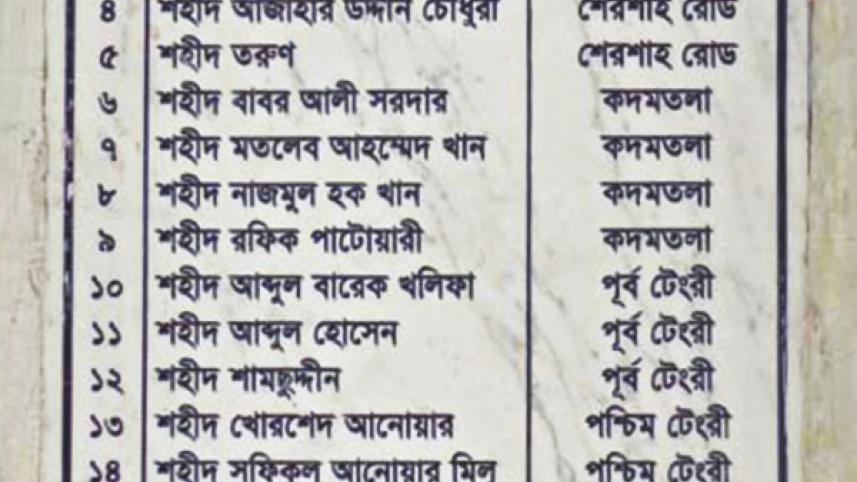 ৪ শহীদ আজাহার উদ্দীন চৌধুরী শেরশাহ রোড
৫ শহীদ তরুণ শেরশাহ রোড
৬ শহীদ বাবর আলী সরদার কদমতলা
৭ শহীদ মতলেব আহম্মেদ খান কদমতলা
৮ শহীদ নাজমুল হক খান কদমতলা
৯ শহীদ রফিক পাটোয়ারী কদমতলা
১০ শহীদ আব্দুল বারেক খলিফা পূর্ব টেংরী
১১ শহীদ আব্দুল হোসেন পূর্ব টেংরী
১২ শহীদ শামছুদ্দীন পূর্ব টেংরী
১৩ শহীদ খোরশেদ আনোয়ার পশ্চিম টেংরী
১৪ শহীদ সফিকুল আনোয়ার মিলু পশ্চিম টেংরী